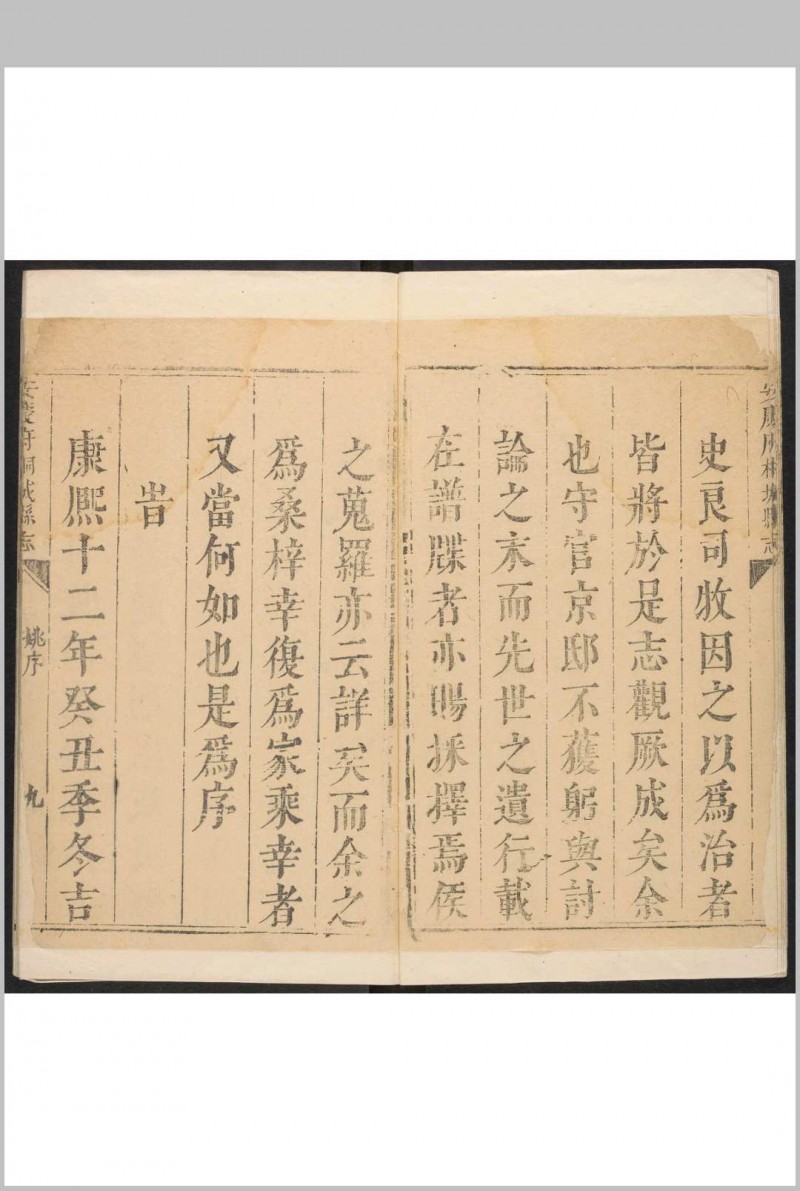 安慶府桐城縣志
史良司牧因之以爲治者
皆將於是志觀厥成矣余
也守官京邸不獲躬與討
論之末而先世之遺行載
在譜牒者亦賜採擇焉侯
之蒐羅亦云詳矣而余之
爲桑梓幸復爲家乘幸者
又當何如也是爲序
旹
康熙十二年癸丑季冬吉
安慶府桐城縣志
姚序
九